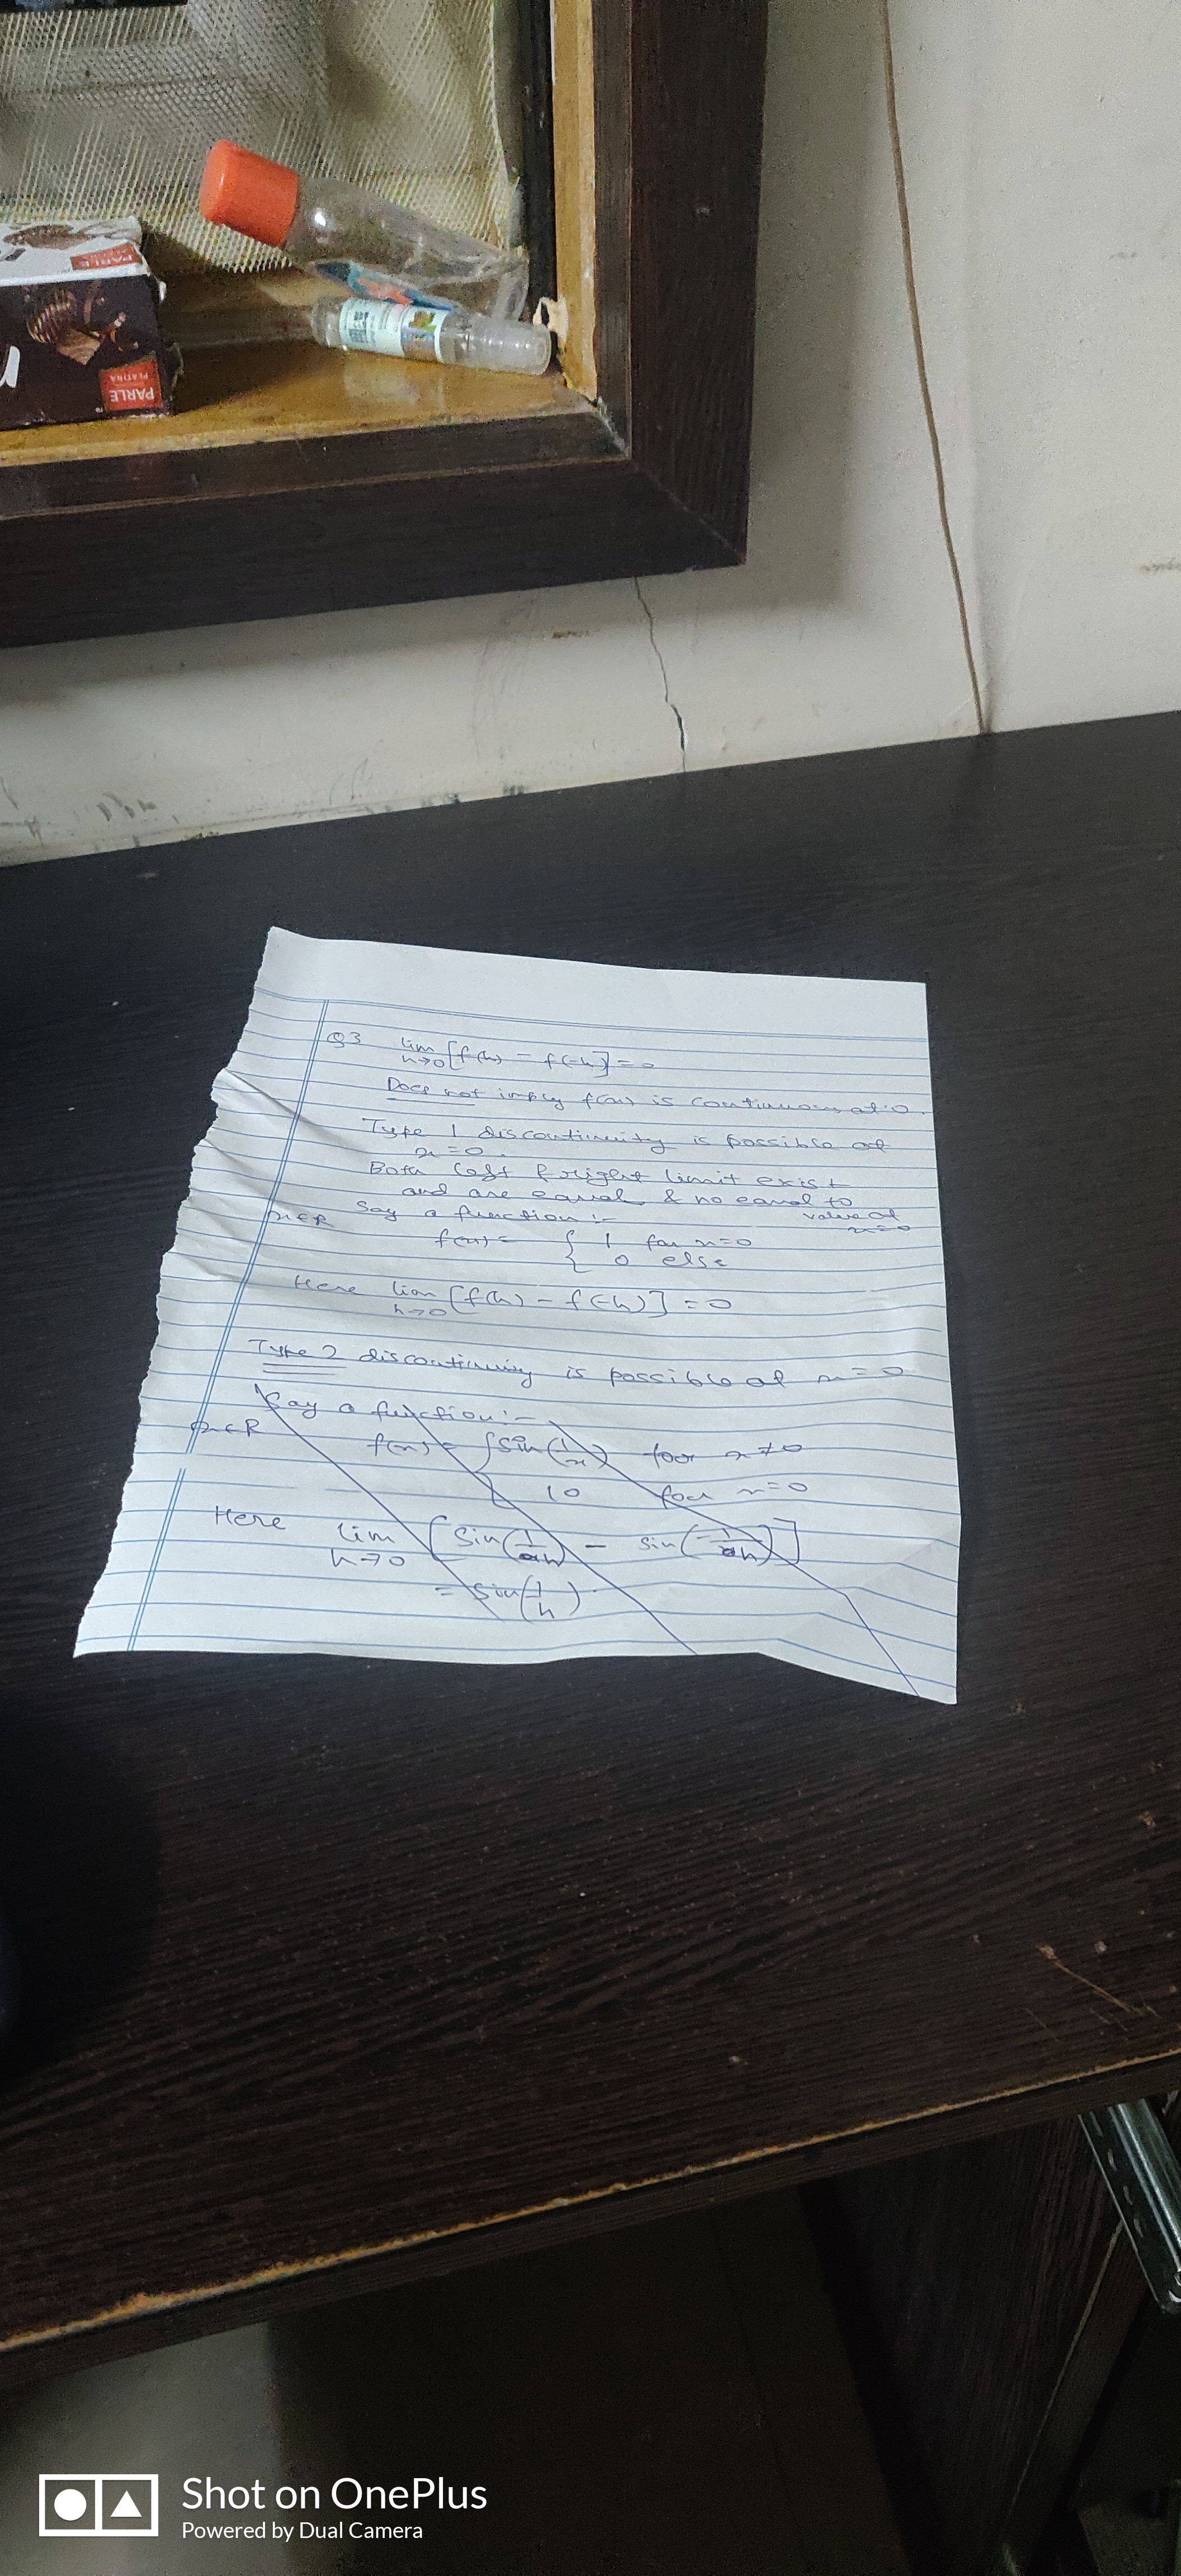 PARLE
PLATINA
PARLE
Q3 lim h→0 [f(h) - f(-h)] = 0
Does not imply f(x) is continuous at 0.
Type 1 discontinuity is possible at
x=0.
Both left & right limit exist
and are equal & no equal to
value at
x=0
Say a function :-
x∈R
f(x) = { 1 for x=0
0 else
Here lim h→0 [f(h) - f(-h)] = 0
Type 2 discontinuity is possible at x=0
Say a function:-
x∈R
f(x) = { sin(1/x) for x≠0
10 for x=0
Here lim h→0 [sin(1/h) - sin(-1/h)]
= sin(1/h)
Shot on OnePlus
Powered by Dual Camera